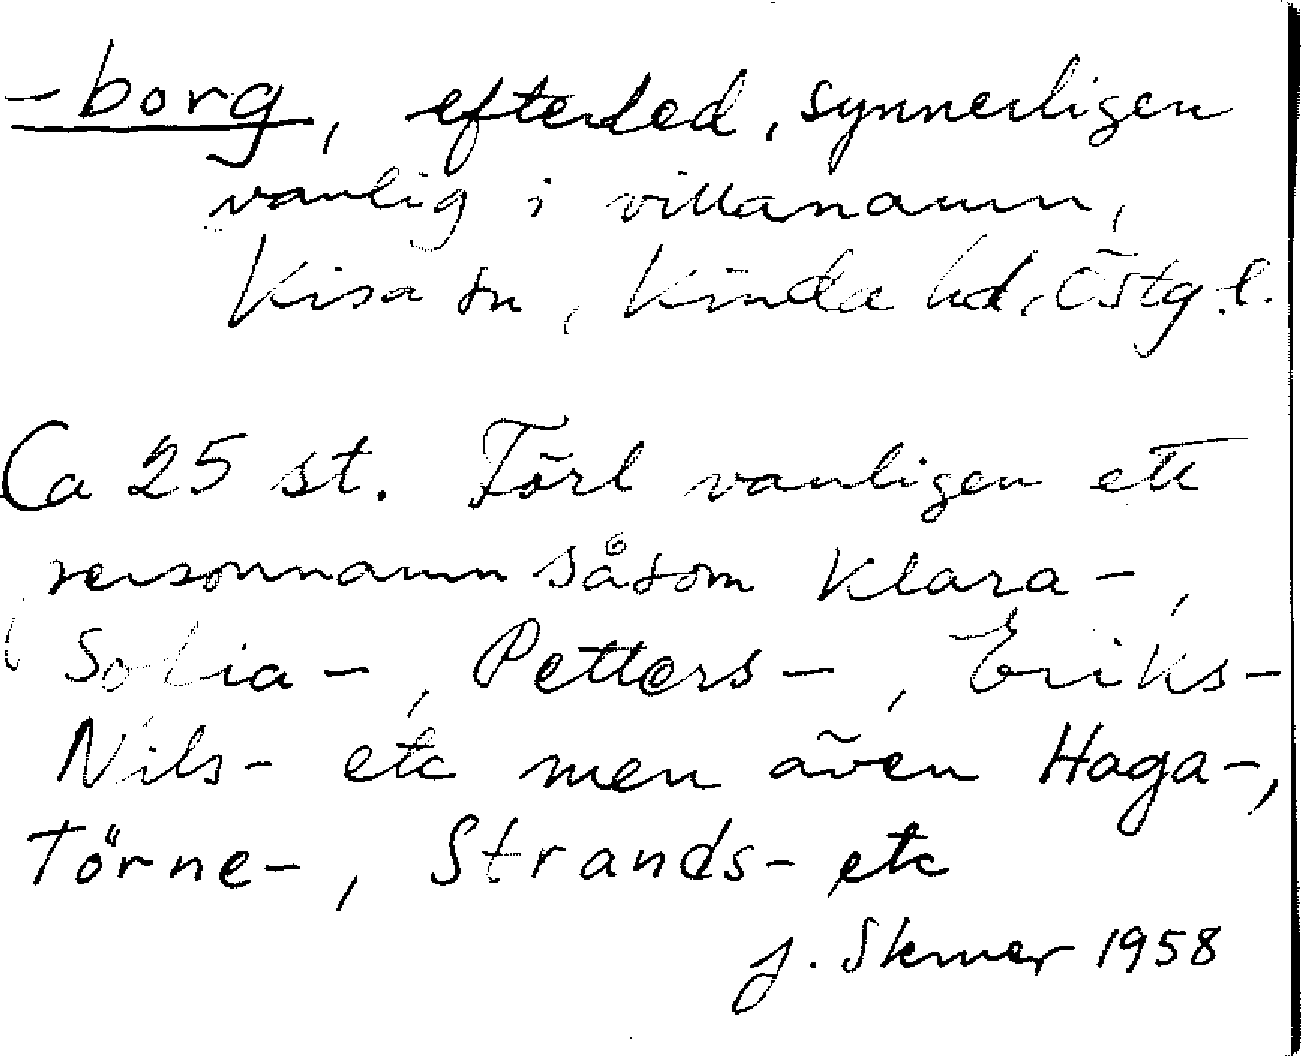 -borg, efterled, synnerligen
vanlig i villanamn,
Kisa sn, Kinda hd, Östg. l.
Ca 25 st. Förl vanligen ett
personnamn såsom Klara-,
Sofia-, Petters-, Eriks-
Nils- etc men även Haga-,
Törne-, Strands- etc
J. 1958